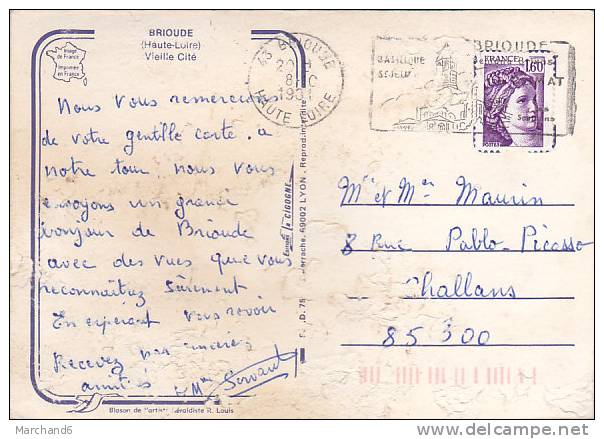 BRIOUDE
(Haute-Loire)
Vieille Cité
Image
de France
Imprimée
en France
43 BRIOUDE
HAUTE-LOIRE
BASILIQUE
St JULIEN
BRIOUDE
FRANCE
1,60
POSTES
Nous vous remercions
de votre gentille carte. a
notre tour nous vous
envoyons un grand
bonjour de Brioude
avec des vues que vous
reconnaîtrez sûrement
En espérant vous revoir
Recevez nos sincères
amitiés
Mme Servant
Mr et Mme Maurin
8 Rue Pablo-Picasso
Challans
85300
Editions la CIGOGNE
69002 LYON - Reprod. interdite
Blason de l'artiste Héraldiste R. Louis
Marchand6
delcampe.net